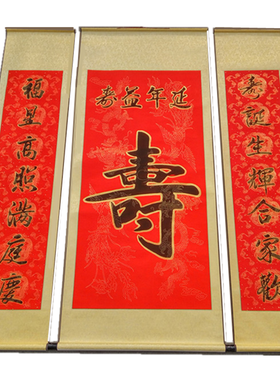 延年益寿
壽
寿誕生輝合家歡
福星高照滿庭慶